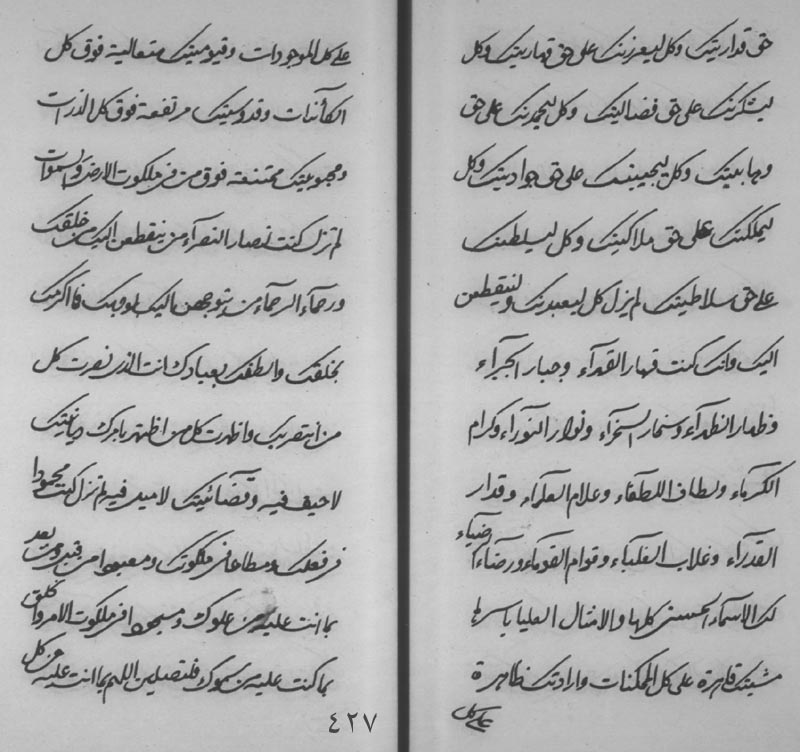 حق قداريتك وكل ليعززنك على حق قهاريتك وكل
ليشكرنك على حق فضاليتك وكل ليحمدنك على حق
وهابيتك وكل ليحبينك على حق جواديتك وكل
ليملكنك على حق ملاكيتك وكل ليسلطنك
على حق سلاطيتك لم يزل كل ليعبدنك ولينقطعن
اليك وانك كنت قهار القهراء وجبار الجبراء
وظهار الظهراء وسخار السخراء ونوار النوراء وكرام
الكرماء ولطاف اللطفاء وعلام العلماء وقدار
القدراء وغلاب الغلباء وقوام القوماء ورضاء الرضياء
لك الاسماء الحسنى كلها والامثال العليا باسرها
مشيتك قاهرة على كل الممكنات وارادتك ظاهرة
على كل
على كل الموجودات وقيوميتك متعالية فوق كل
الكآئنات وقدوسيتك مرتفعة فوق كل الذرات
ومحبوبيتك ممتنعة فوق من في ملكوت الارض والسموات
لم تزل كنت نصار النصرآء من ينقطعن اليك من خلقك
ورحآء الرحمآء من يتوجهن اليك
بخلقك والطفك بعبادك انت الذي نصرت كل
من استنصر بك واظهرت كل من اظهر بامرك
لا حيف فيه وقضائيتك لا ميل فيه لم تزل كنت محمودا
في فعلك ومطاعا في ملكوتك ومعبودا من قبل ومن بعد
بما انت عليه من علوك ومسجودا في ملكوت الامر والخلق
بما كنت عليه من سموك فلتصلين اللهم بما انت عليه من كل
٤٢٧